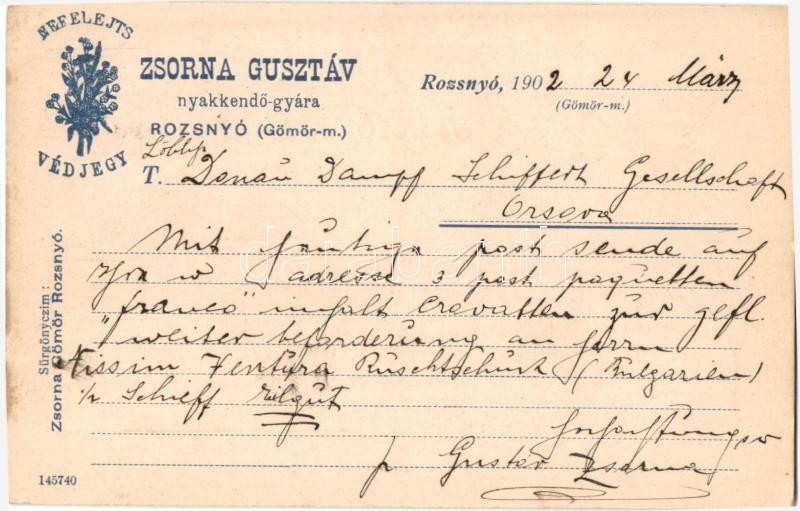 NEFELEJTS
VÉDJEGY
ZSORNA GUSZTÁV
nyakkendő-gyára
ROZSNYÓ (Gömör-m.)
Rozsnyó, 1902 24 März
(Gömör-m.)
Löbl.
T. Donau Dampf Schiffert Gesellschaft
Orsova
Mit heutiger post sende auf
Ihre w adresse 3 post paquetten
"franco" inhalt Cravatten zur gefl.
weiter beförderung an Herrn
Nissim Ventura Ruschtschuck (Bulgarien)
p Schieff Eilgut
Hochachtungsv
p Gustav Zsorna
Sürgönyczim:
Zsorna Gömör Rozsnyó.
145740